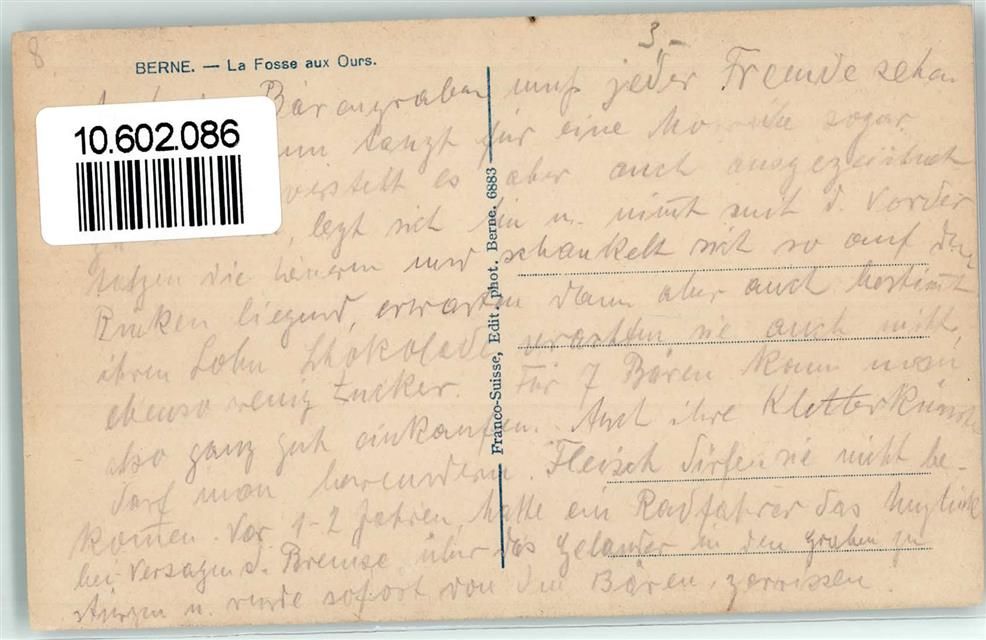 8
3,-
BERNE. — La Fosse aux Ours.
10.602.086
Franco-Suisse, Edit. phot. Berne. 6883
Bärengraben muß jeder Fremde sehen
tanzt für eine sogar.
versteht es aber auch ausgezeichnet
, legt sich hin u. nimt mit d. Vorder
tatzen die hinteren und schaukelt sich so auf dem
Rücken liegend, erwarten dann aber auch bestimt
ihren Lohn Schokolade verachten sie auch nicht,
ebenso wenig Zucker. Für 7 Bären kann man
also ganz gut einkaufen. Auch ihre Kletterkünste
darf man bewundern. Fleisch dürfen sie nicht be-
komen. Vor 1-2 Jahren hatte ein Radfahrer das Unglück
bei Versagen d. Bremse über das Geländer in den Graben zu
stürzen u. wurde sofort von den Bären zerrissen.